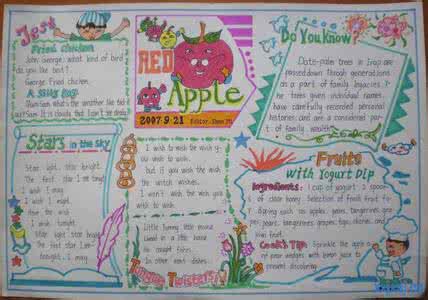 Jest
Fried Chicken
John: George, what kind of bird
do you like best?
George: Fried chicken.
Stars in the Sky
Star light, star bright
The first star I see tonight
I wish I may
I wish I might
Have the wish
I wish tonight
Star light star bright
The first star I see
tonight, I may
RED
Apple
2007.9.21 Editor:
I wish to wish the wish y-
ou wish to wish,
but if you wish the wish
the witch wishes,
I won't wish the wish you
wish to wish.
Little Timmy
Lived in a little house
He caught fishes
In other men's dishes.
Tongue Twisters!
Do You Know?
Date-palm trees in Iraq are
passed down through generations
as a part of family legacies. T-
he trees given individual names,
have carefully recorded personal
histories and are considered par-
t of family wealth.
Fruits
with Yogurt Dip
Ingredients: 1 cup of yogurt, 2 spoon-
s of clear honey. Selection of fresh fruit fo-
r dipping such as apples, pears, tangerines
pears, tangerines, grapes, figs, cherries, and
kiwi fruit.
Cook's Tip: Sprinkle the apple o-
r pear wedges with lemon juice to
prevent discoloring.